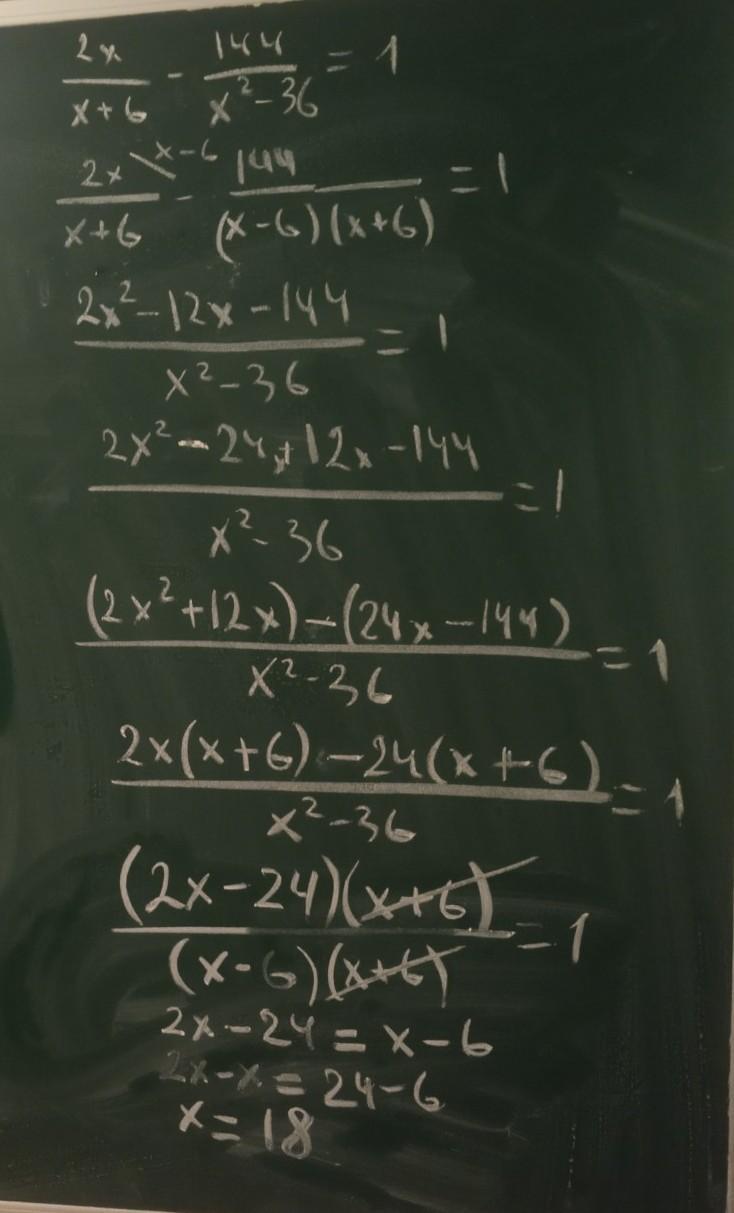 2x/(x+6) - 144/(x²-36) = 1
2x\x-6/(x+6) - 144/((x-6)(x+6)) = 1
(2x²-12x-144)/(x²-36) = 1
(2x²-24x+12x-144)/(x²-36) = 1
((2x²+12x)-(24x-144))/(x²-36) = 1
(2x(x+6)-24(x+6))/(x²-36) = 1
((2x-24)(x+6))/((x-6)(x+6)) = 1
2x-24 = x-6
2x-x = 24-6
x = 18